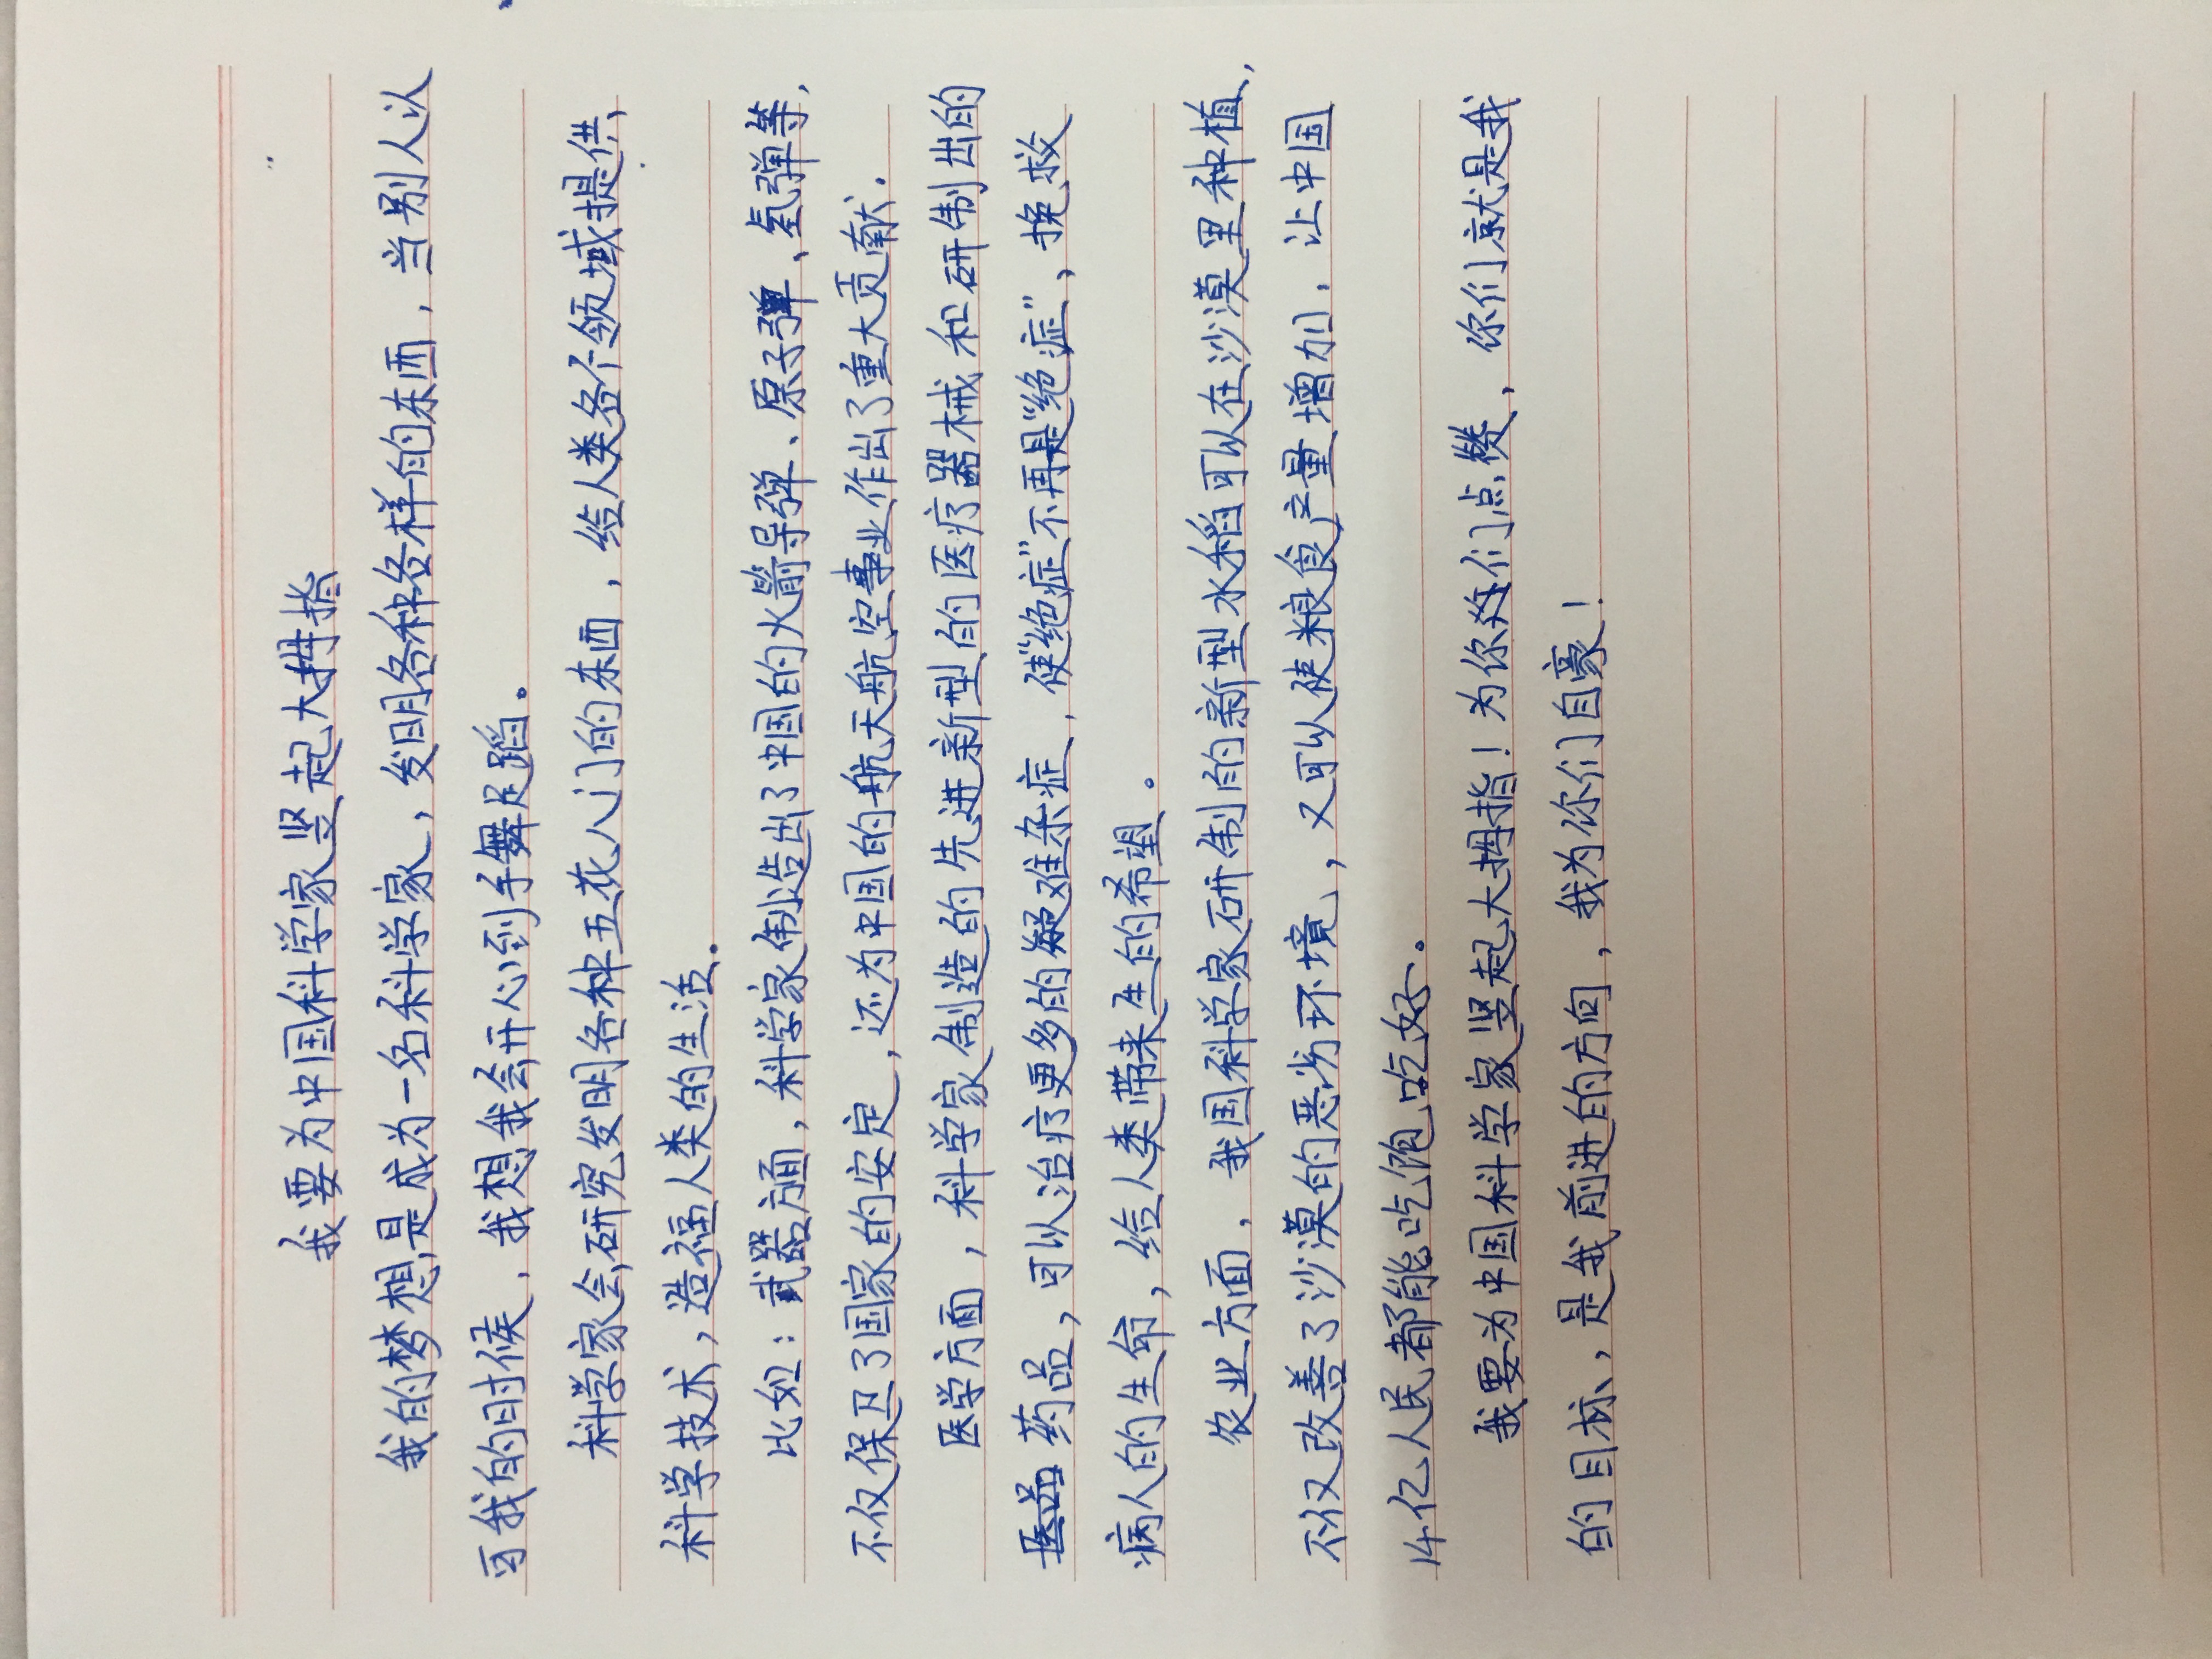 我要为中国科学家竖起大拇指
我的梦想是成为一名科学家，发明各种各样的东西，当别人认
可我的时候，我想我会开心到手舞足蹈。
科学家会研究发明各种五花八门的东西，给人类各个领域提供
科学技术，造福人类的生活。
比如：武器方面，科学家制造出了中国的火箭导弹、原子弹、氢弹等，
不仅保卫了国家的安定，还为中国的航天航空事业作出了重大贡献.
医学方面，科学家制造的先进新型的医疗器械和研制出的
药品，可以治疗更多的疑难杂症，使“绝症”不再是“绝症”，挽救
病人的生命，给人类带来生的希望。
农业方面，我国科学家研制的新型水稻可以在沙漠里种植，
不仅改善了沙漠的恶劣环境，又可以使粮食产量增加，让中国
14亿人民都能吃饱吃好。
我要为中国科学家竖起大拇指！为你们点赞，你们就是我
的目标，是我前进的方向，我为你们自豪！